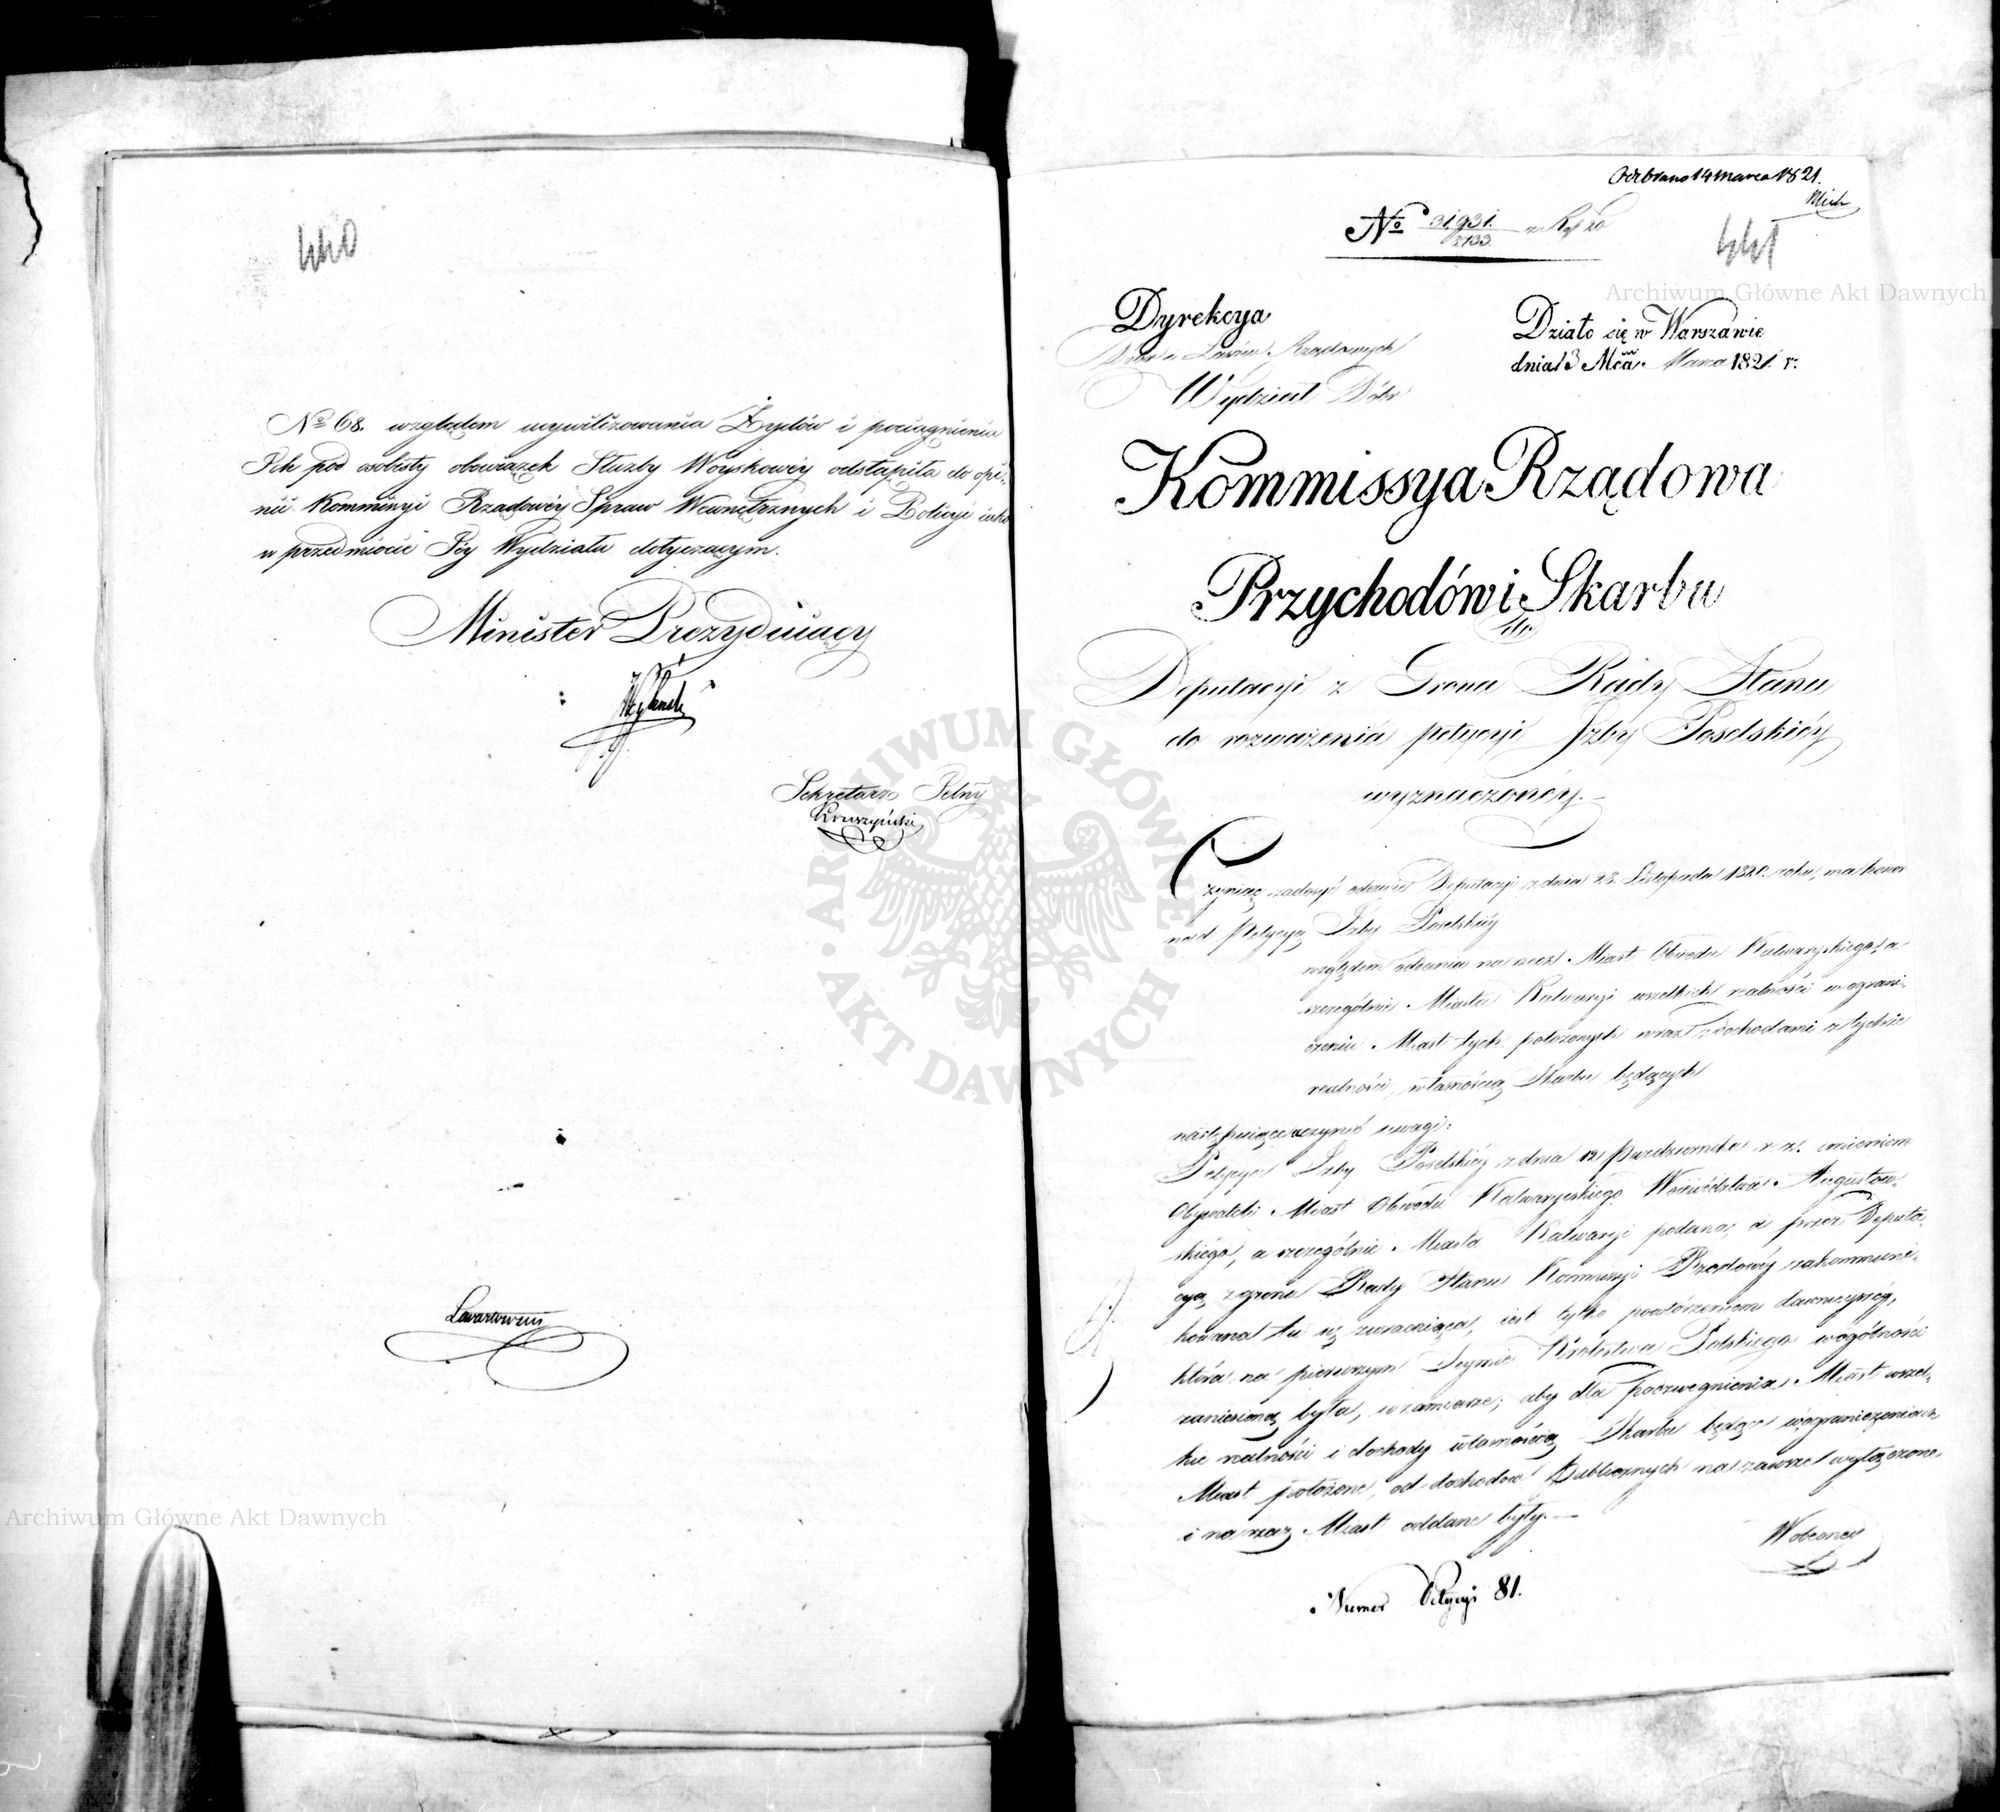 440
No 68. względem ucywilizowania Żydów i pociągnienia
Ich pod osobisty obowiązek Służby Woyskowéy odstąpiła do opi-
nii Kommissyi Rządowéy Spraw Wewnętrznych i Policyi iako
w przedmiocie Jéy Wydziału dotyczącym.
Minister Prezyduiący
Sekretarz Jelny
Kruszyński
Odebrano 14 Marca 1821.
No 31931.
441
Dyrekcya
Dóbr i Lasów Rządowych
Wydział Dóbr
Działo się w Warszawie
dnia 13 Mca Marca 1821 r:
Kommissya Rządowa
Przychodów i Skarbu
Do
Deputacyi z Grona Rady Stanu
do rozważenia petycyi Izby Poselskiéy
wyznaczonéy.
Czyniąc zadosyć odezwie Deputacyi z dnia 23. Listopada 1820. roku, ma honor
nad Petycyą Izby Poselskiéy
względem oddania na rzecz Miast Obwodu Kalwaryiskiego, a
szczególnie Miasta Kalwaryi wszelkich realności w ograni-
czeniu Miast tych położonych wraz z dochodami z tychże
realności, własnością Skarbu będących
następuiące uczynić uwagi:
Petycya Izby Poselskiéy z dnia 12 Października r. z. imieniem
Obywateli Miast Obwodu Kalwaryiskiego Woiewództwa Augustow-
skiego, a szczególnie Miasta Kalwaryi podana, a przez Deputa-
cyą z grona Rady Stanu Kommissyi Rządowéy zakommuni-
kowana tu się zwracaiąca, iest tylko powtórzeniem dawnieyszéy,
która na pierwszym Seymie Królestwa Polskiego w ogólności
zaniesioną była, w zamiarze, aby dla podźwignienia Miast wszel-
kie realności i dochody własnością Skarbu będące w ograniczeniach
Miast położone, od dochodów Publicznych na zawsze wyłączone
i na rzecz Miast oddane były.
W obecney
Numer Petycyi 81.
Archiwum Główne Akt Dawnych
Archiwum Główne Akt Dawnych
ARCHIWUM GŁÓWNE AKT DAWNYCH